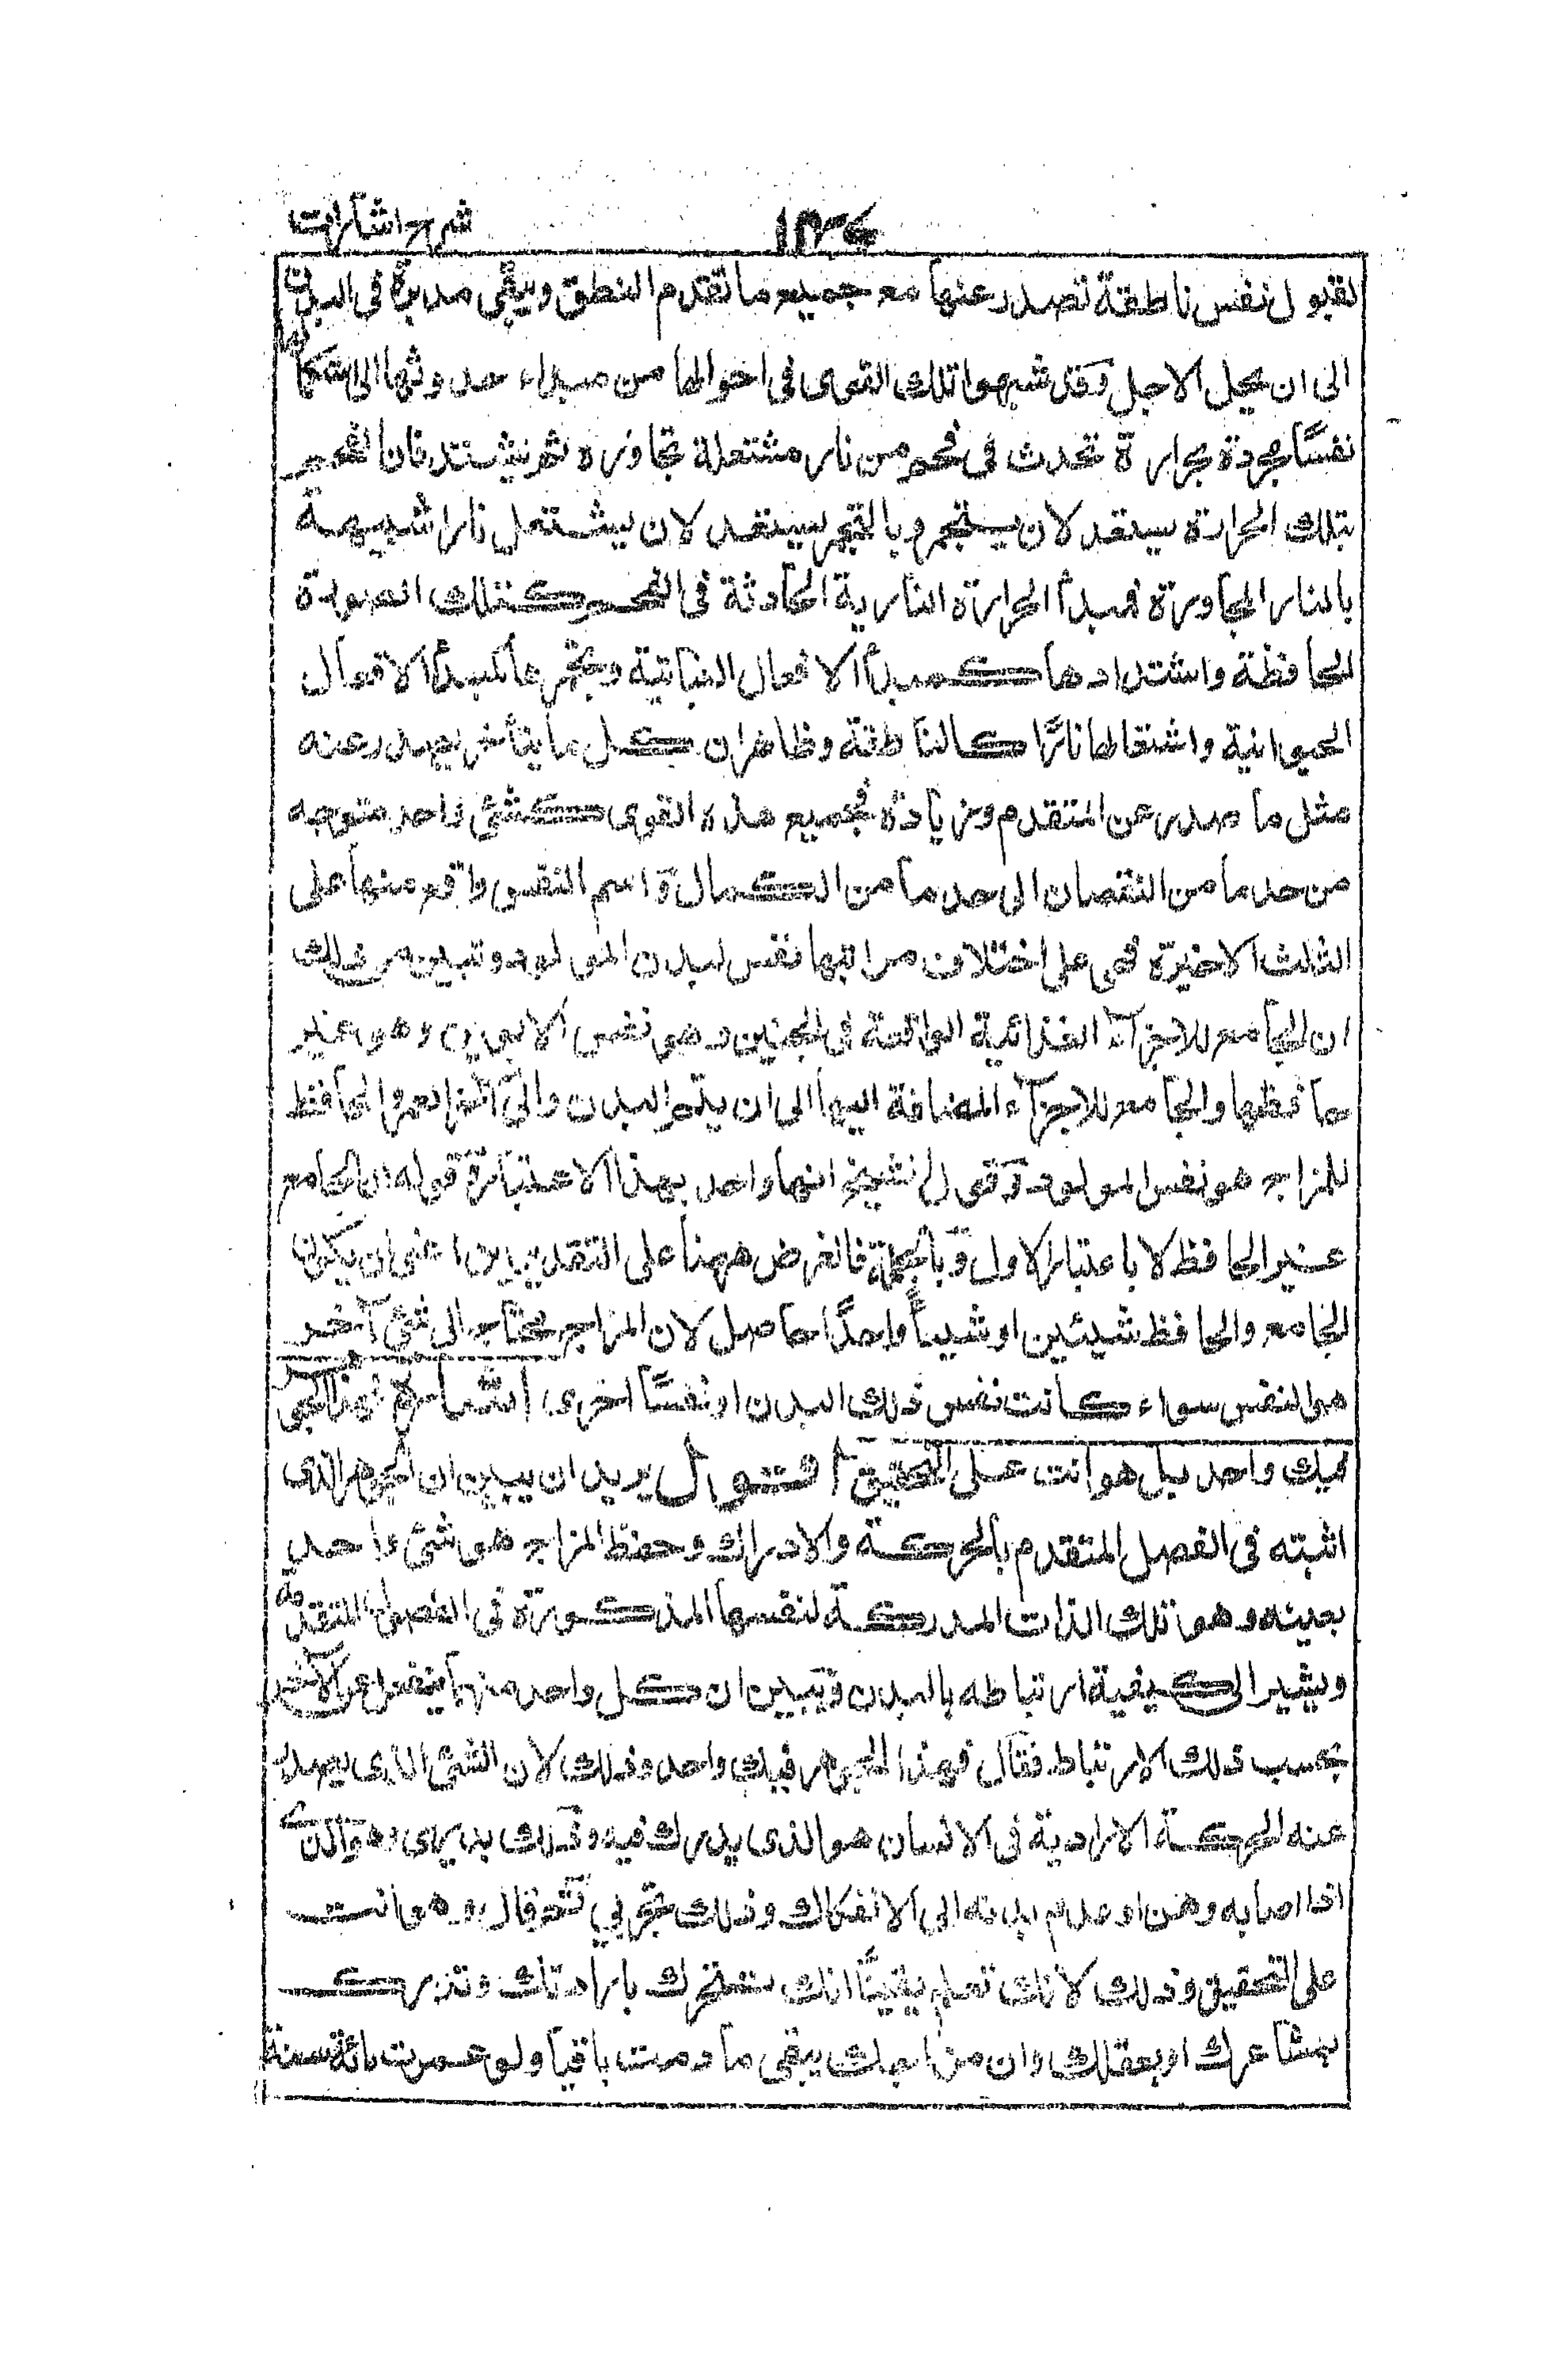 شرح اشارات
١٣٤
لقبول نفس ناطقة تصدر عنها مع جميع ما تقدم النطق ويبقى مدبرة فى البدن
الى ان يحل الاجل وقد شبهوا تلك القوى فى احوالها من مبداء حدوثها الى استكمالها
نفسًا مجردة بحرارة تحدث فى فحم من نار مشتعلة تجاوره ثم تشتد فان الفحم
بتلك الحرارة يستعد لان يتجمر وبالتجمر يستعد لان يشتعل نارا شبيهة
بالنار المجاورة فمبدأ الحرارة النارية الحادثة فى الفحم كتلك الصورة
الحافظة واشتدادها كمبدأ الافعال النباتية وتجمرها كمبدأ الافعال
الحيوانية واشتعالها نارًا كالناطقة وظاهر ان كل ما يتأخر يصدر عنه
مثل ما صدر عن المتقدم وزيادة فجميع هذه القوى كشئ واحد متوجه
من حد ما من النقصان الى حد ما من الكمال واسم النفس واقع منها على
الثلث الاخيرة فهى على اختلاف مراتبها نفس لبدن المولود وتبين من ذلك
ان الجامع للاجزآء الغذائية الواقعة فى الجنين هو نفس الابوين وهو غير
حافظها والجامع للاجزآء المضافة اليها الى ان يتم البدن والى آخر العمر والحافظ
للمزاج هو نفس المولود وقول الشيخ انها واحد بهذا الاعتبار وقوله ان الجامع
غير الحافظ لا باعتبار الاول وبالجملة فالغرض ههنا على التقديرين اعنى ان يكون
الجامع والحافظ شيئين او شيئًا واحدًا حاصل لان المزاج يحتاج الى شئ آخر
هو النفس سواء كانت نفس ذلك البدن او نفسًا اخرى اشارة فهذا الجوهر
فيك واحد بل هو انت على التحقيق اقول يريد ان يبين ان الجوهر الذى
اثبته فى الفصل المتقدم بالحركة والادراك وحفظ المزاج هو شئ واحد
بعينه وهو تلك الذات المدركة لنفسها المذكورة فى الفصول المتقدمة
ويشير الى كيفية ارتباطه بالبدن ويبين ان كل واحد منهما ينفعل عن الآخر
بحسب ذلك الارتباط فقال فهذا الجوهر فيك واحد وذلك لان الشئ الذى يصدر
عنه الحركة الارادية فى الانسان هو الذى يدرك فيه وذلك بديهى وهو الذى
اذا اصابه وهن او عدم بدنه الى الانفكاك وذلك تجربى ثم قال وهو انت
على التحقيق وذلك لانك تعلم يقينًا انك تتحرك بارادتك وتدرك
بمشاعرك او بعقلك وان مزاجك يبقى ما دمت باقيا ولو عمرت مائة سنة